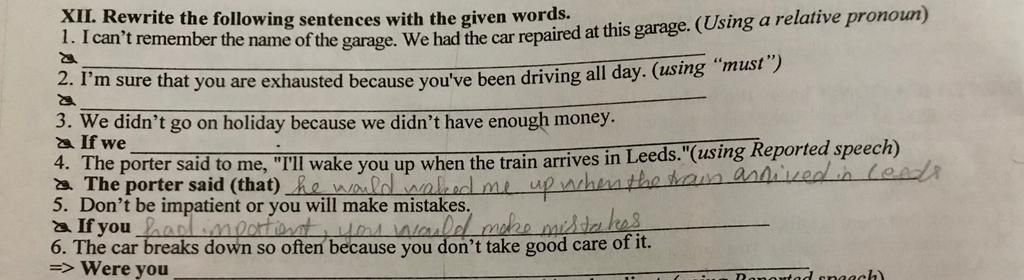 XII. Rewrite the following sentences with the given words.
1. I can't remember the name of the garage. We had the car repaired at this garage. (Using a relative pronoun)
2. I'm sure that you are exhausted because you've been driving all day. (using "must")
3. We didn't go on holiday because we didn't have enough money.
If we
4. The porter said to me, "I'll wake you up when the train arrives in Leeds."(using Reported speech)
The porter said (that) he would waked me up when the train arrived in Leeds
5. Don't be impatient or you will make mistakes.
If you had impatient, you would make mistakes
6. The car breaks down so often because you don't take good care of it.
=> Were you
Reported speech)